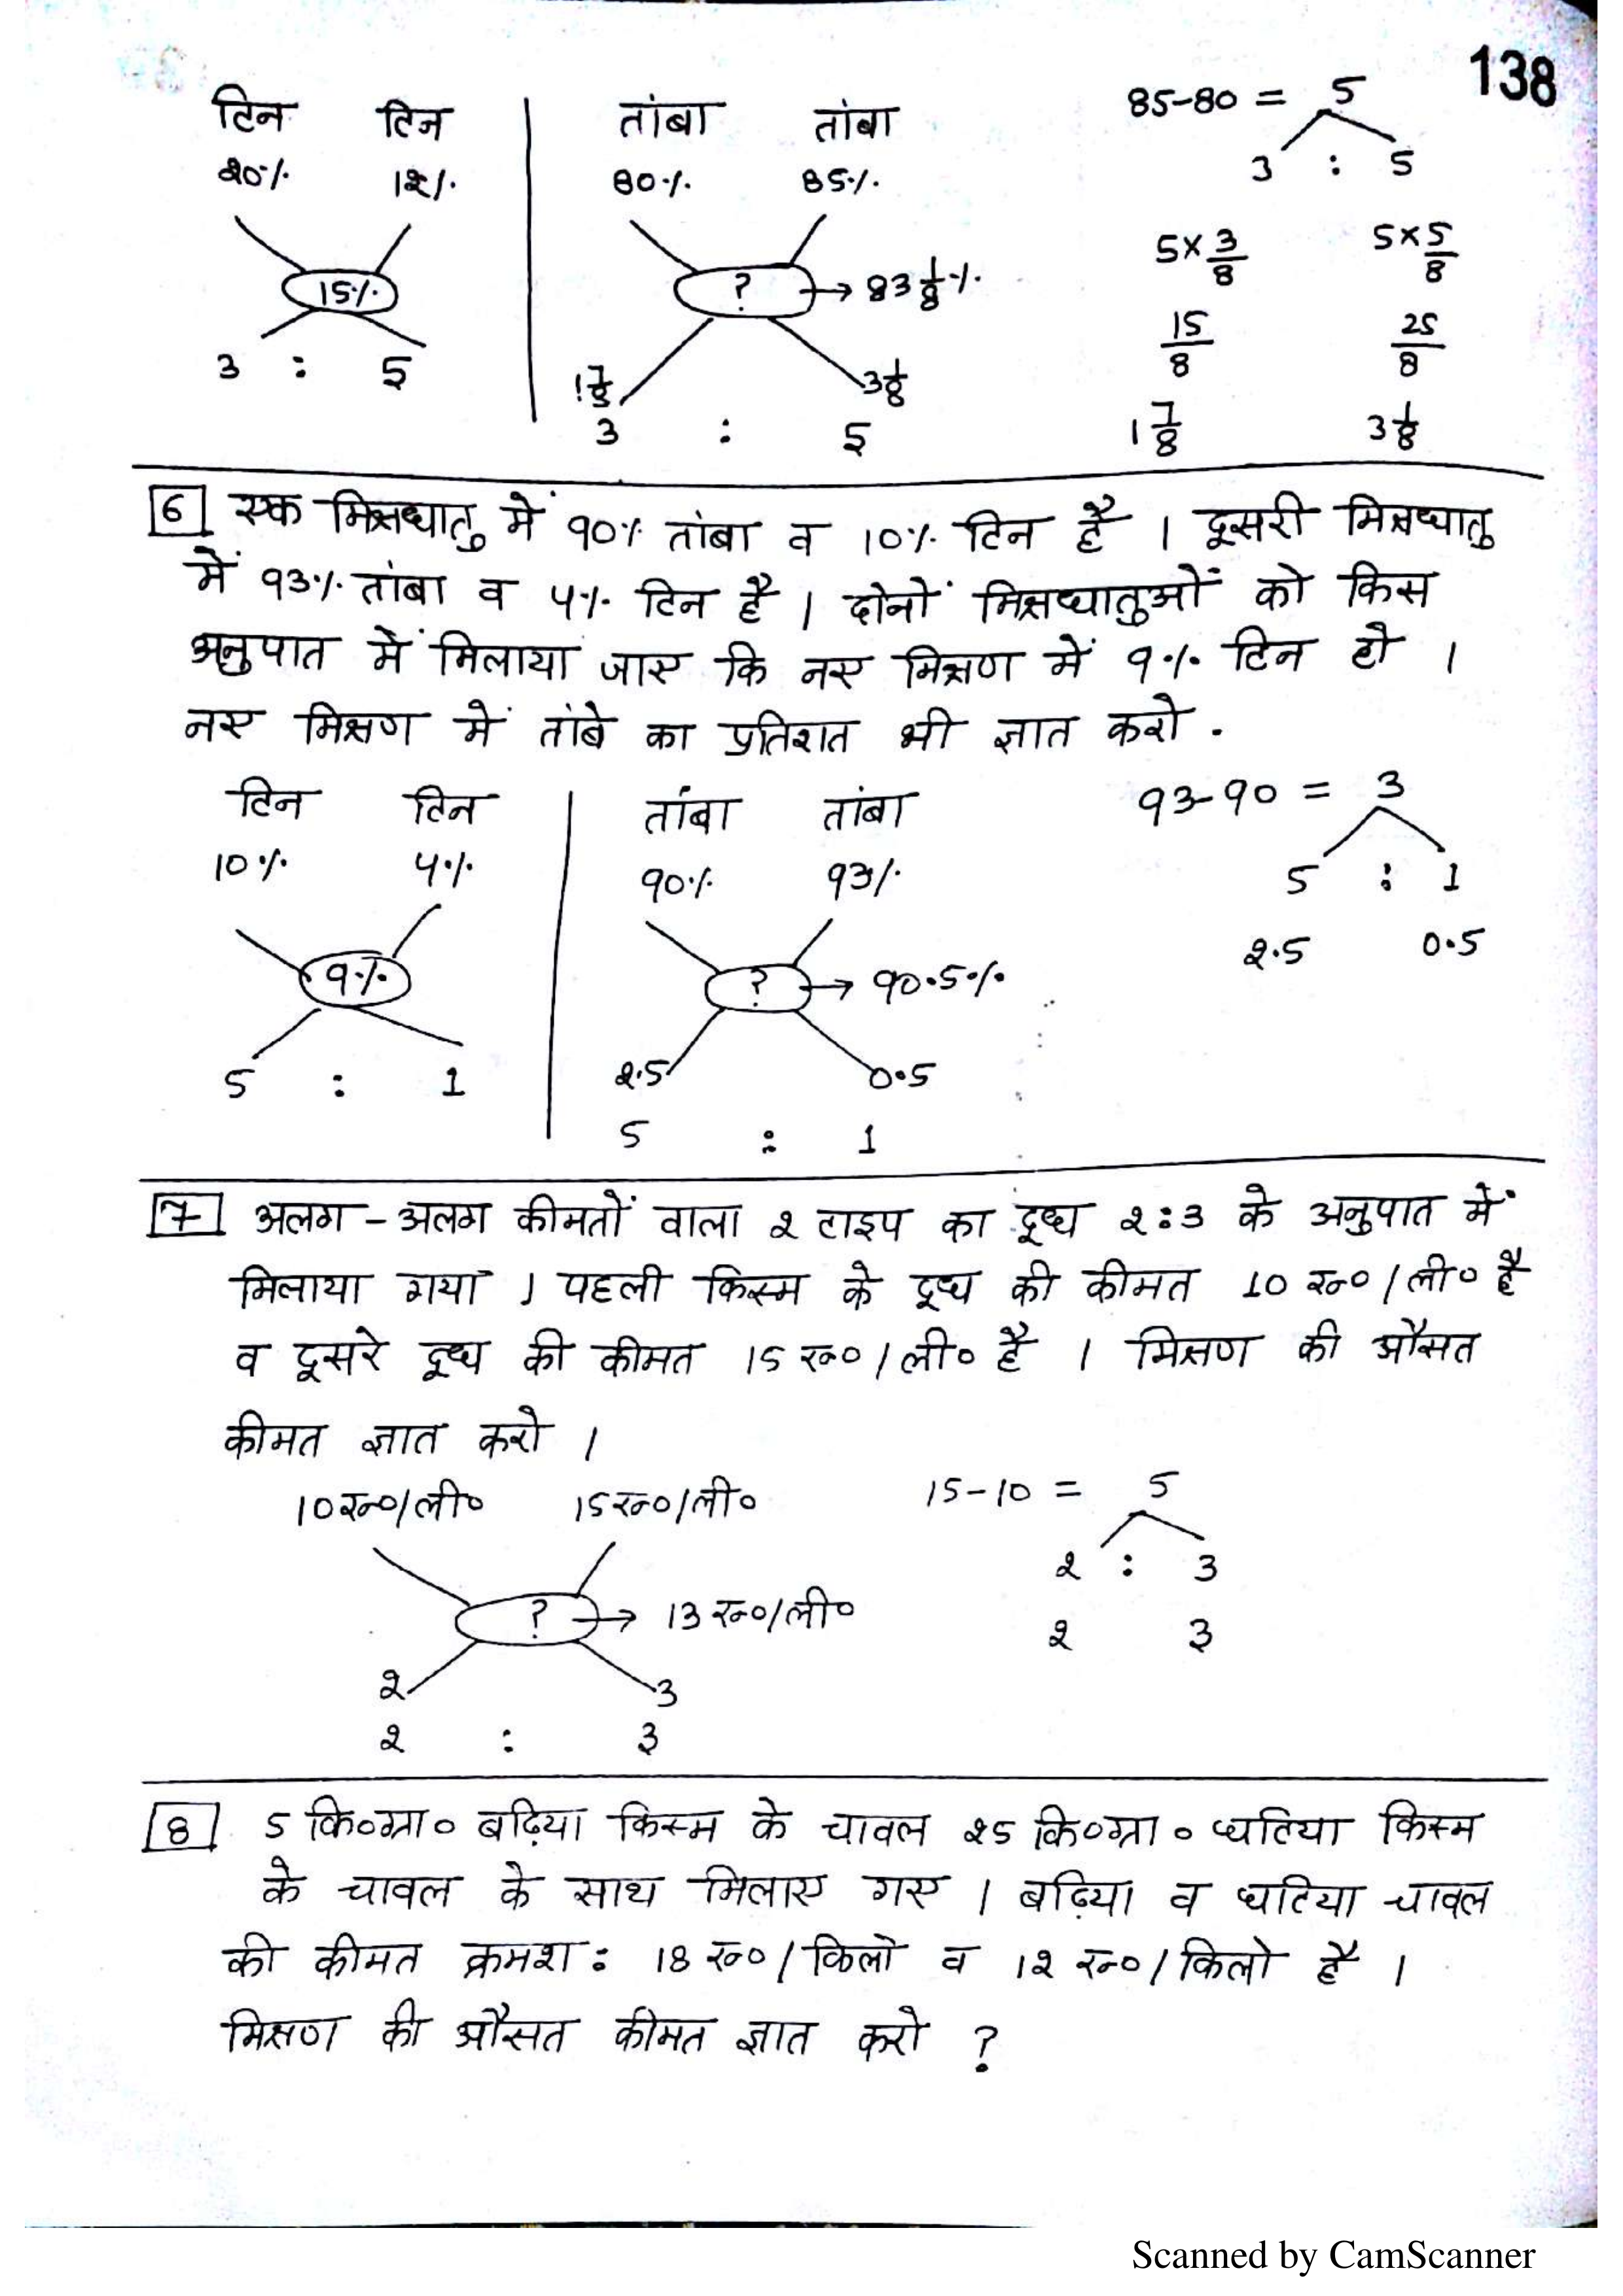 138
टिन टिन तांबा तांबा 85-80 = 5
20% 12% 80% 85% 3 : 5
15% ? → 83 1/8 % 5×3/8 5×5/8
15/8 25/8
3 : 5 1 7/8 3 1/8
3 : 5 1 7/8 3 1/8
6 एक मिश्रधातु में 90% तांबा व 10% टिन है । दूसरी मिश्रधातु
में 93% तांबा व 4% टिन है । दोनों मिश्रधातुओं को किस
अनुपात में मिलाया जाए कि नए मिश्रण में 9% टिन हो ।
नए मिश्रण में तांबे का प्रतिशत भी ज्ञात करो .
टिन टिन तांबा तांबा 93-90 = 3
10% 4% 90% 93% 5 : 1
2.5 0.5
9% ? → 90.5%
5 : 1 2.5 0.5
5 : 1
7 अलग - अलग कीमतों वाला 2 टाइप का दूध 2:3 के अनुपात में
मिलाया गया । पहली किस्म के दूध की कीमत 10 रु०/ली० है
व दूसरे दूध की कीमत 15 रु०/ली० है । मिश्रण की औसत
कीमत ज्ञात करो ।
10रु०/ली० 15रु०/ली० 15-10 = 5
2 : 3
? → 13 रु०/ली० 2 3
2 3
2 : 3
8 5 कि०ग्रा० बढ़िया किस्म के चावल 25 कि०ग्रा० घटिया किस्म
के चावल के साथ मिलाए गए । बढ़िया व घटिया चावल
की कीमत क्रमश: 18 रु०/किलो व 12 रु०/किलो है ।
मिश्रण की औसत कीमत ज्ञात करो ?
Scanned by CamScanner